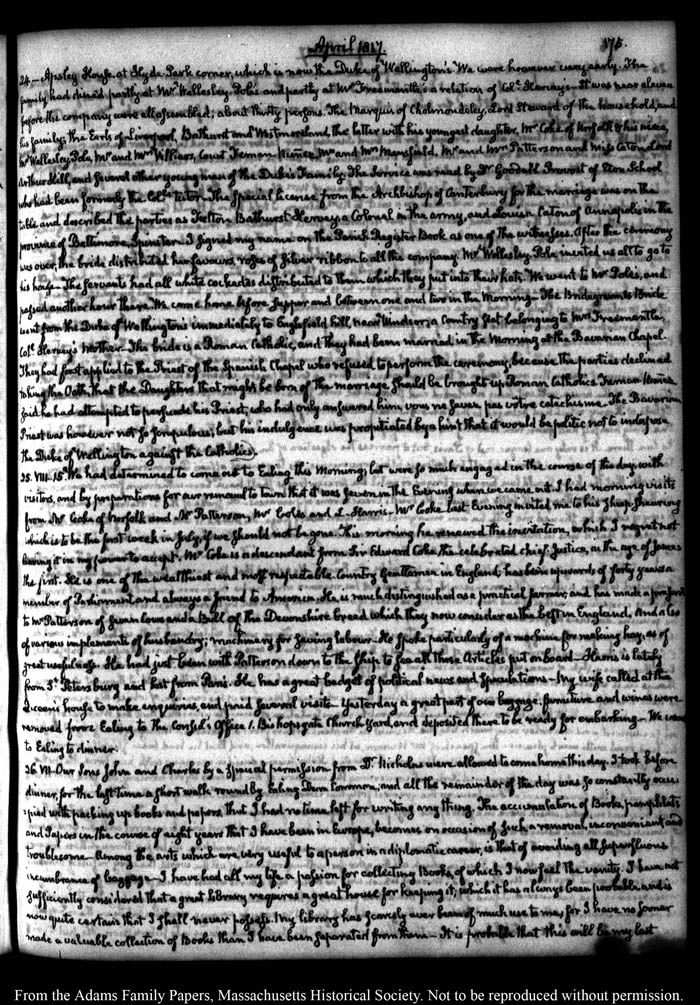 April 1817. 375.
24.— Apsley House at Hyde Park corner, which is now the Duke of Wellington's. We were however very early. The
family had dined partly at Mr Wellesley Pole's and partly at Mr Freemantle's a relation of Coll. Hervey's— It was near eleven
before the company were all assembled; about thirty persons. The Marquis of Cholmondeley, Lord Steward of the household, and
his family; the Earls of Liverpool, Bathurst and Westmoreland, the latter with his youngest daughter, Mr Coke of Norfolk & his niece,
Mr Wellesley Pole, Mr and Mrs Villiers, Count Fernan Nuñez, Mr and Mrs Mansfield, Mr and Mrs Patterson and Miss Caton, Lord
Arthur Hill, and several other young men of the Duke's Family. The Service was read by Dr Goodall Provost of Eton School
who had been formerly the Coll's tutor. The Special license from the Archbishop of Canterbury for the marriage was on the
table and described the parties as Felton Bathurst Hervey a Colonel in the army, and Louisa Caton of Annapolis in the
province of Baltimore, Spinster. I signed my name on the Parish Register Book as one of the witnesses. After the ceremony
was over, the bride distributed her favours, roses of Silver ribbon to all the company. Mr Wellesley Pole invited us all to go to
his house— The Servants had all white cockades distributed to them which they put into their hats. We went to Mr Pole's, and
passed another hour there. We came home before supper and between one and two in the Morning— The Bridegroom & Bride
went from the Duke of Wellington's immediately to Englefield hill, near Windsor; a Country Seat belonging to Mrs Freemantle,
Coll. Hervey's Mother— The bride is a Roman Catholic, and they had been married in the Morning at the Bavarian Chapel.
They had first applied to the Priest of the Spanish Chapel who refused to perform the ceremony, because the parties declined
taking the Oath that the Daughters that might be born of the marriage should be brought up Roman Catholics. Fernan Nuñez
said he had attempted to persuade his Priest, who had only answered him, vous ne savez pas votre catechisme. The Bavarian
Priest was however not so scrupulous; but his indulgence was propitiated by a hint that it would be politic not to indispose
the Duke of Wellington against the Catholics.
25. VIII. 15. We had determined to come out to Ealing this Morning; but were so much engaged in the course of the day, with
visitors, and by preparations for our removal to town that it was seven in the Evening when we came out. I had morning visits
from Mr Coke of Norfolk and Mr Patterson, Mr Coles and L. Harris— Mr Coke last Evening invited me to his Sheep Shearing
which is to be the first week in July, if we should not be gone. This morning he renewed the invitation, which I regret not
having it in my power to accept. Mr Coke is a descendant from Sir Edward Coke the celebrated chief Justice, in the age of James
the first. He is one of the wealthiest and most respectable Country Gentlemen in England; has been upwards of forty years a
member of Parliament and always a friend to America. He is much distinguished as a practical farmer; and has made a present
to Mr Patterson of seven Cows and a Bull of the Devonshire breed which they now consider as the best in England. And also
of various implements of husbandry; machinery for saving labour— He spoke particularly of a machine for making hay, as of
great usefulness. He had just been with Patterson down to the Ship to see all these Articles put on board— Harris is lately
from St. Petersburg and last from Paris. He has a great budget of political news and Speculations— My wife called at the
Queen's house to make enquiries, and paid several visits— Yesterday a great part of our baggage, furniture and wines were
removed from Ealing to the Consul's Office 1. Bishopsgate Church Yard, and deposited there to be ready for embarking— We came
to Ealing to dinner.
26. VII. Our Sons John and Charles by a special permission from Dr. Nicholas were allowed to come home this day. I took before
dinner, for the last time a short walk round by Ealing Dean Common, and all the remainder of the day was so constantly occu-
pied with packing up books and papers, that I had no time left for writing any thing. The accumulation of Books, pamphlets
and Papers in the course of eight years that I have been in Europe, becomes on occasion of such a removal, inconvenient and
troublesome— Among the arts which are very useful to a person in a diplomatic career, is that of avoiding all superfluous
incumbrance of baggage— I have had all my life a passion for collecting Books, of which I now feel the vanity. I have not
sufficiently considered that a great library requires a great house for keeping it; which it has always been probable and is
now quite certain that I shall never possess. My library has scarcely ever been of much use to me, for I have no sooner
made a valuable collection of Books than I have been separated from them— It is probable that this will be my last
From the Adams Family Papers, Massachusetts Historical Society. Not to be reproduced without permission.